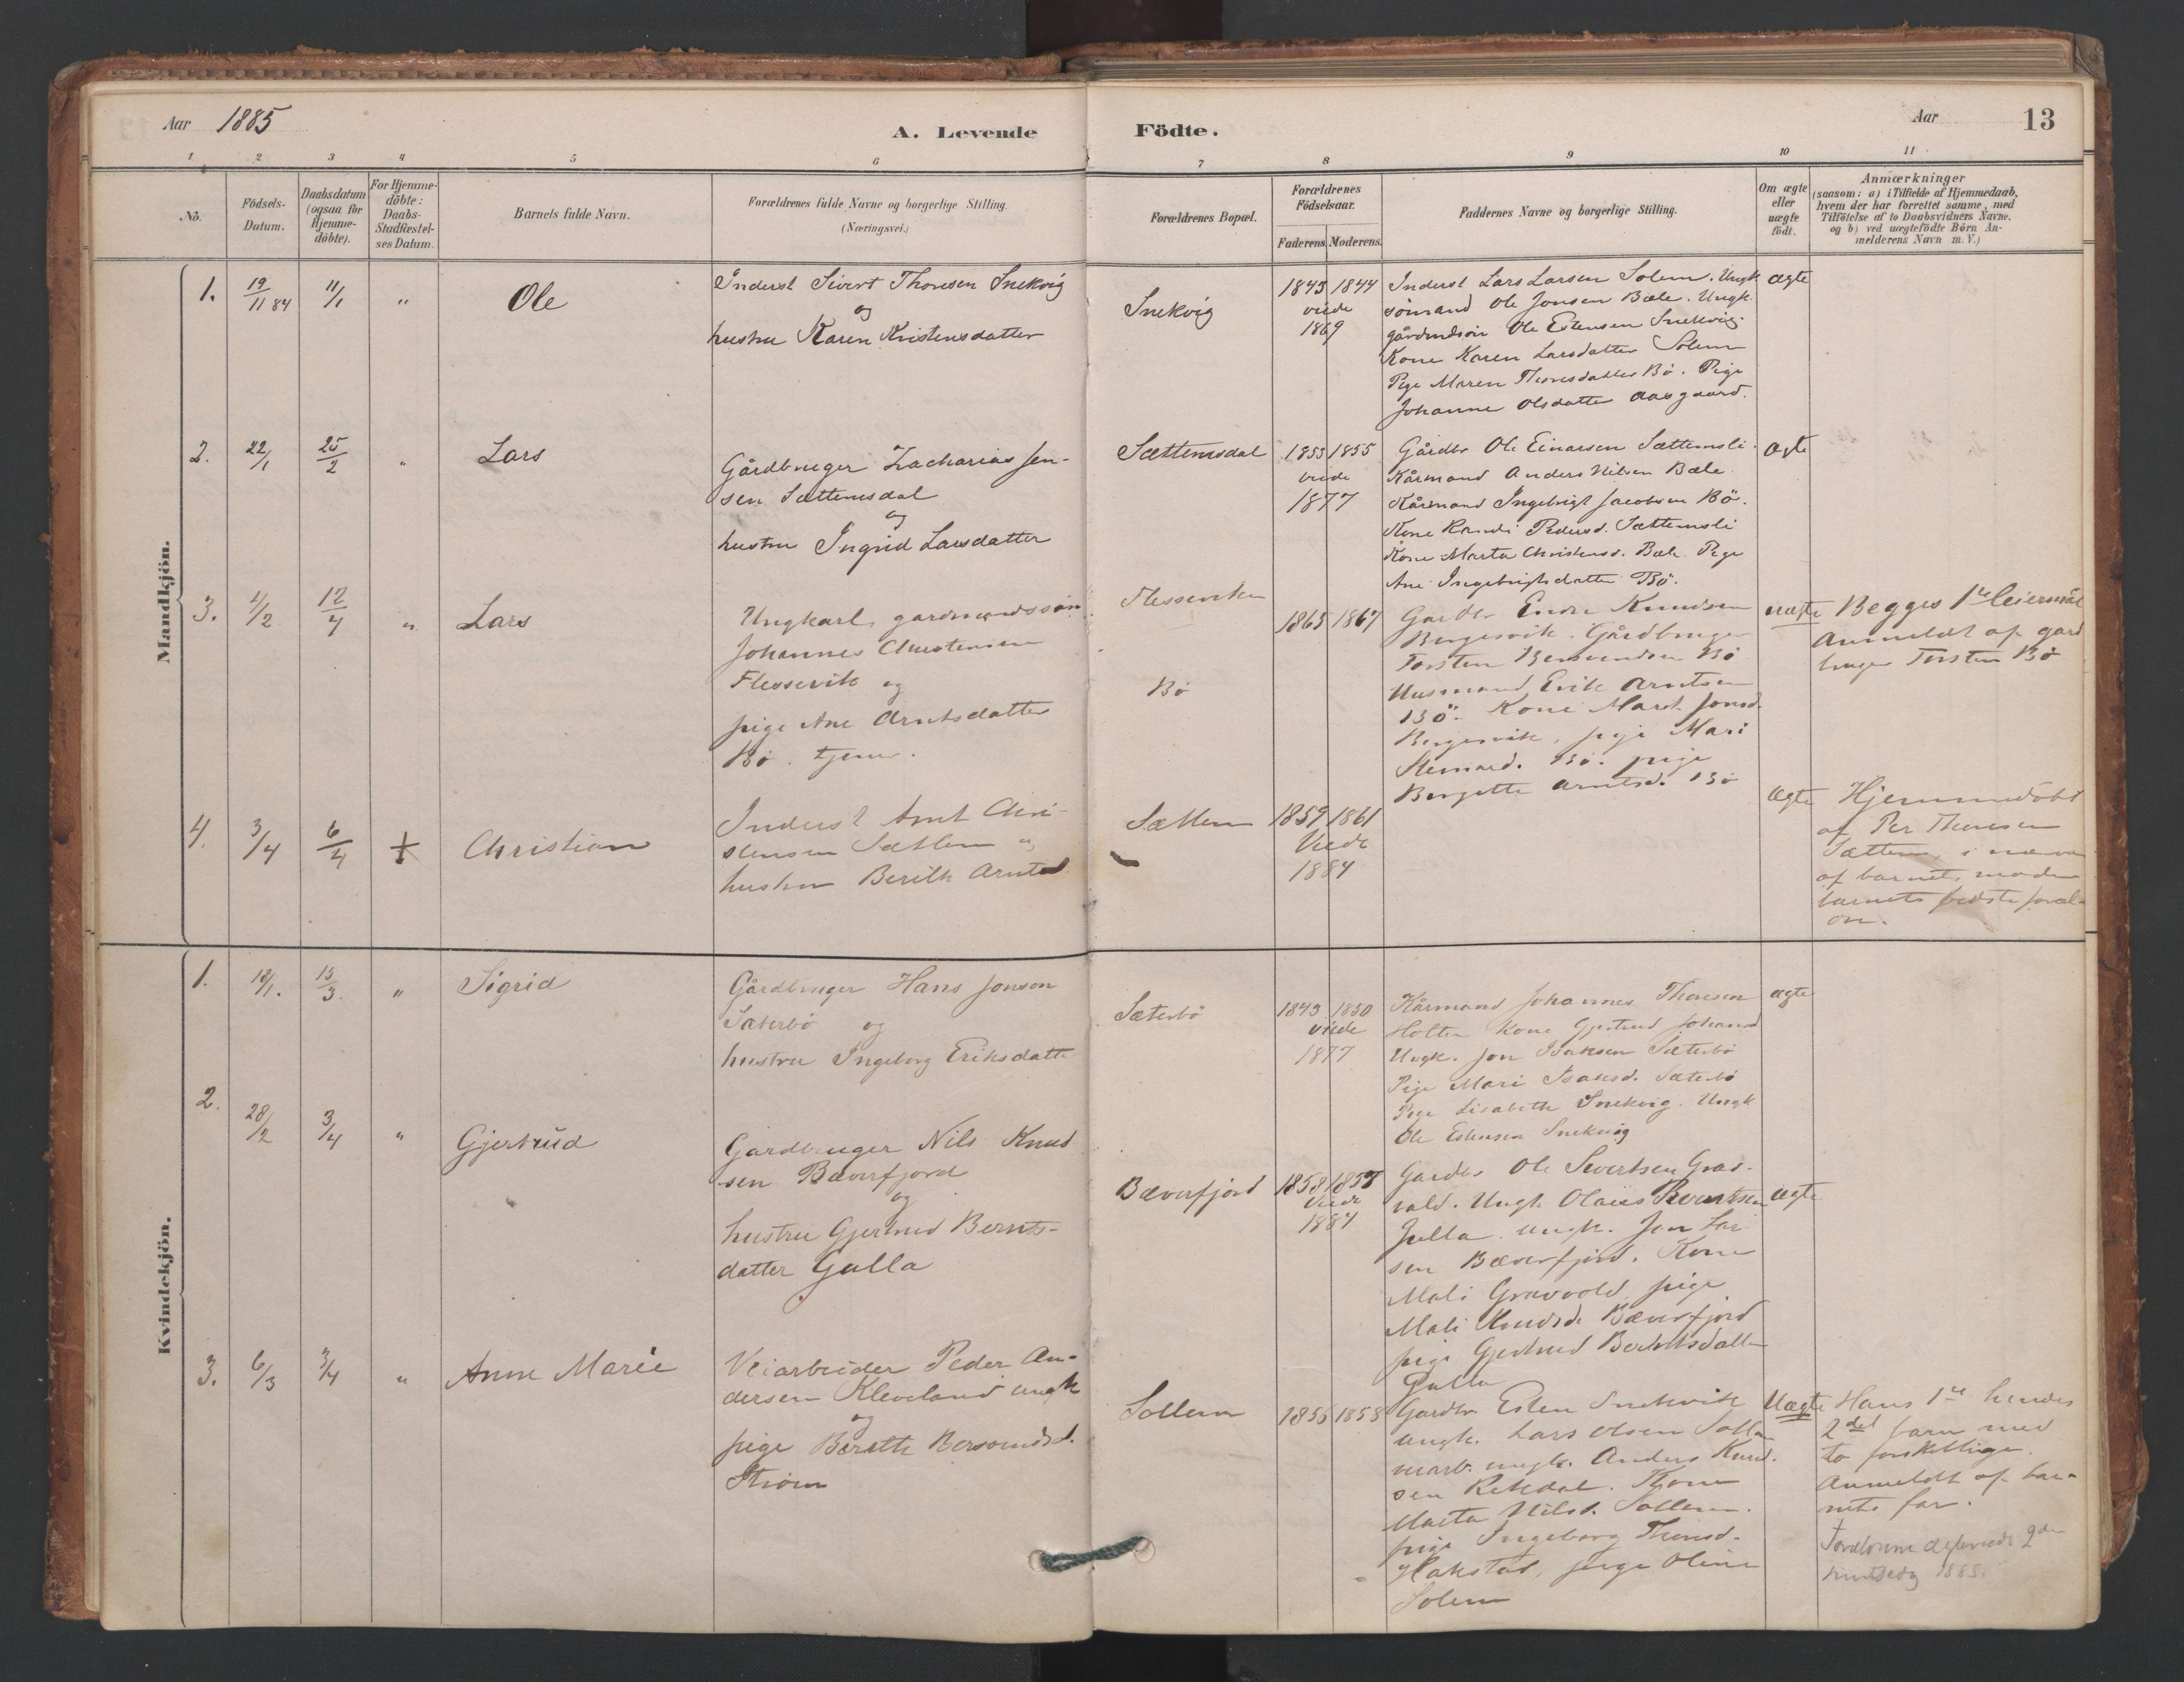 Aar 1885
A. Levende
Födte.
Aar
13
1 2 3 4 5 6 7 8 9 10 11
No.
Födsels-
Datum.
Daabsdatum
(ogsaa for
Hjemme-
döbte).
For Hjemme-
döbte:
Daabs-
Stadfæstel-
ses Datum.
Barnets fulde Navn.
Forældrenes fulde Navne og borgerlige Stilling.
(Næringsvei.)
Forældrenes Bopæl.
Forældrenes
Födselsaar.
Faderens. Moderens.
Faddernes Navne og borgerlige Stilling.
Om ægte
eller
uægte
födt.
Anmærkninger
(saasom: a) i Tilfælde af Hjemmedaab,
hvem der har forrettet samme, med
Tilföielse af to Daabsvidners Navne,
og b) ved uægtefödte Börn An-
melderens Navn m. V.)
Mandkjön.
1. 19/11 84 11/1 " Ole
Inderst Sivert Thoresen Snekvig
og
hustru Karen Kristensdatter
Snekvig
1843 1844
viede
1869
Inderst Lars Larsen Solem. Ungk.
sömand Ole Jonsen Bæle. Ungk.
gårdmdsön Ole Estensen Snekvig.
Kone Karen Larsdatter Solem
Pige Maren Thoresdatter Bö. Pige
Johanne Olsdatter Aasgaard.
ægte
2. 22/1 25/2 " Lars
Gårdbruger Zacharias Jen-
sen Sættemsdal
og
hustru Ingrid Larsdatter
Sættemsdal
1853 1855
viede
1877
Gårdbr Ole Einarsen Sættemsli.
Kårmand Anders Nilsen Bæle
Kårmand Ingebrigt Jacobsen Bö.
Kone Randi Pedersd. Sættemsli
Kone Marta Christensd. Bæle. Pige
Ane Ingebrigtsdatter Bö.
ægte
3. 4/2 12/4 " Lars
Ungkarl, gardmandssön
Johannes Christensen
Flessevik og
pige Ane Arntsdatter
Bö. tjener.
Bö
1865 1867
Gardbr Endre Knudsen
Bergesvik. Gårdbruger
Torsten Bersvendsen Bö
Husmand Erik Arntsen
Bö. Kone Maret Jonsd.
Bergesvik, pige Mari
Bö. pige
Bergette Arntsd. Bö
uægte
Begges 1te leiermål
Anmeldt af gard
bruger Torsten Bö
4. 3/4 6/4 + Christian
Inderst Arnt Chri-
stensen Sættem og
hustru Berith Arntsd
Sættem
1859 1861
Viede
1884
ægte
Hjemmedöbt
af Per Thoresen
Sættem, i nærvær
af barnets moder
barnets bedsteforæl-
dre.
Kvindekjön.
1. 10/1. 15/3. " Sigrid
Gårdbruger Hans Jonson
Sæterbö og
hustru Ingeborg Eriksdatt
Sæterbö
1843 1850
viede
1877
Kårmand Johannes Thoresen
Holten Kone Gjertrud Johansd
Ungk. Jon Isaksen Sæterbö
Pige Mari Isaksd. Sæterbö
Pige Lisabeth Snekvig. Ungk
Ole Estensen Snekvig
ægte
2. 28/2 3/4 " Gjertrud
Gardbruger Nils Knud
sen Bæverfjord
og
hustru Gjertrud Bernts-
datter Gulla
Bæverfjord
1858
Viede
1884
Gardbr Ole Sivertsen Gras-
vold. Ungk Olaus Berntsen
Gulla. ungk. Jon Lar
sen Bæverfjord. Kone
Mali Grasvold, pige
Mali Knudsd. Bæverfjord
pige Gjertrud Berntsdatter
Gulla
ægte
3. 6/3 3/4 " Anne Marie
Veiarbeider Peder An-
dersen Kleveland ungk
og
pige Berith Bersvendsd.
Ström
Sollem
1856 1858
Gardbr Esten Snekvik
ungk. Lars Olsen Sollem
ungk. Anders Knud-
sen Rekdal. Kone
Marta Nilsd. Sollem.
pige Ingeborg Thoresd.
Hakstad, pige Oline
Solem
Uægte
Hans 1te hendes
2det barn med
to forskellige.
Anmeldt af bar-
nets far.
1885.